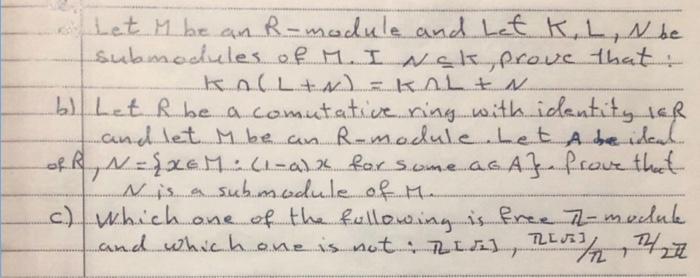 Let M be an R-module and Let K, L, N be
submodules of M. I N ⊆ K, prove that :
K ∩ (L + N) = K ∩ L + N
b) Let R be a comutative ring with identity 1∈R
and let M be an R-module. Let A be ideal
of R, N = {x ∈ M : (1-a)x for some a ∈ A}. Prove that
N is a submodule of M.
c) Which one of the following is free ℤ-module
and which one is not : ℤ[√2], ℤ[√2]/ℤ, ℤ/2ℤ